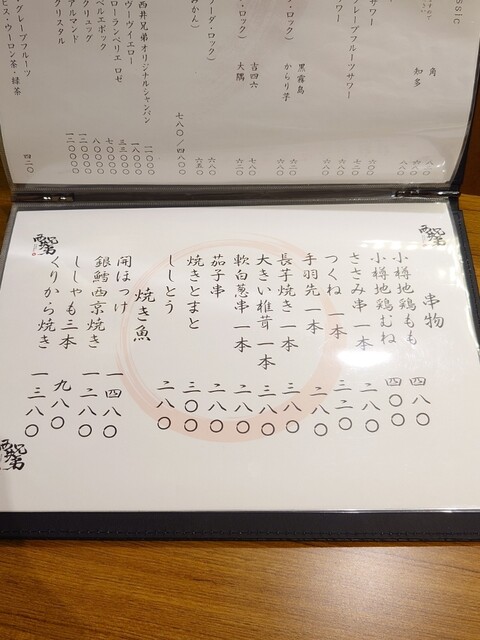 ssic
角
知多 八八〇
サワー 六〇〇
レープフルーツサワー 七二〇
サワー
・ロック)
黒霧島 六八〇
からり芋
ーダ・ロック)
吉四六 七八〇
大隅 六二〇
・ロック) 六八〇
みかん) 六五〇
七八〇/四八〇〇
西井兄弟オリジナルシャンパン
ヴーヴイエロー
ローランペリエ ロゼ
ベルエポック
クリュッグ
アルマンド
クリスタル
・グレープフルーツ
ヒス・ウーロン茶・緑茶 四二〇
串物
小樽地鶏もも 四八〇
小樽地鶏むね 四〇〇
ささみ串 一本 二八〇
つくね 一本 三二〇
手羽先 一本 二八〇
長芋焼き 一本 三八〇
大きい椎茸 一本 三八〇
軟白葱串 一本 二八〇
茄子串 二八〇
焼きとまと 三〇〇
ししとう 二八〇
焼き魚
開ほっけ 一四八〇
銀鱈西京焼き 一二八〇
ししゃも三本 九八〇
くりから焼き 一三八〇